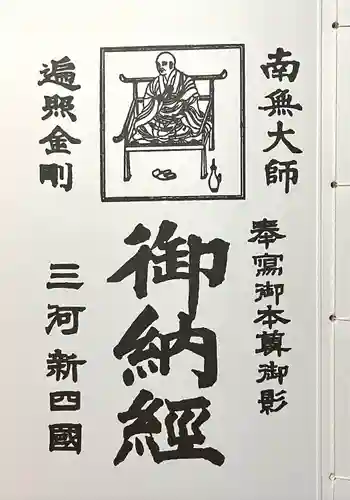 南無大師
奉寫御本尊御影
御納經
遍照金剛
三河新四國